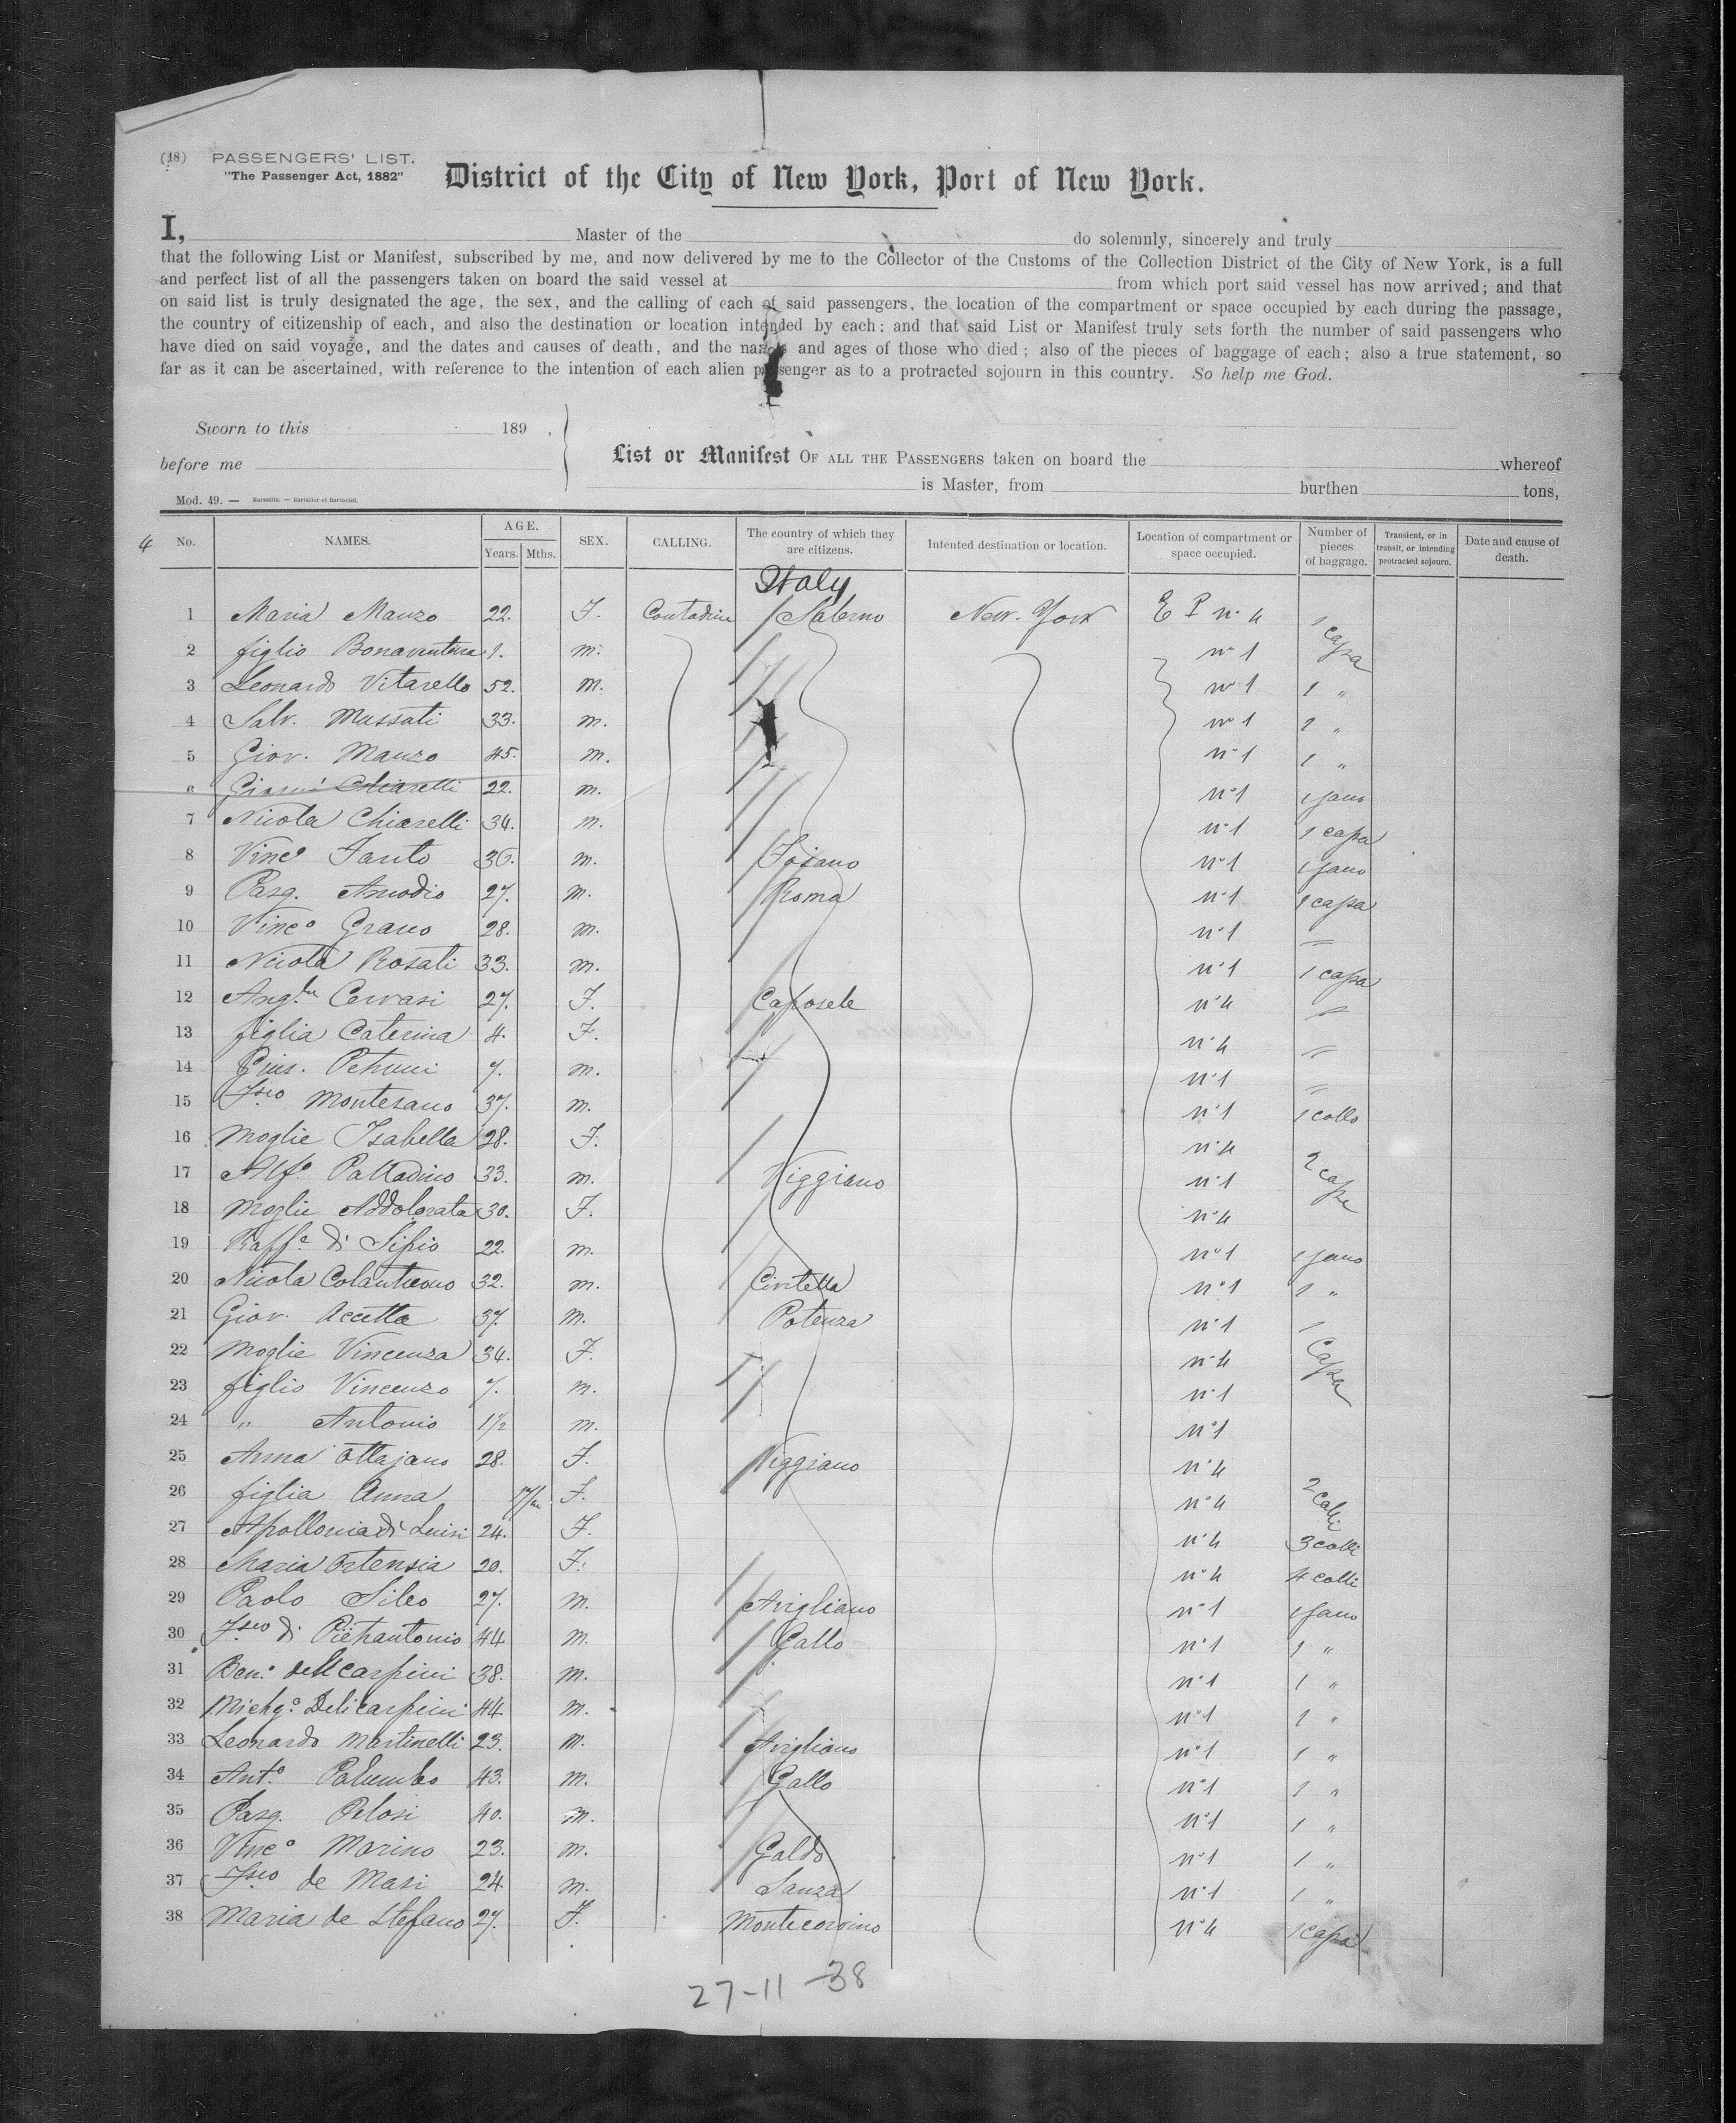 (18) PASSENGERS' LIST.
"The Passenger Act, 1882"
District of the City of New York, Port of New York.
I, Master of the do solemnly, sincerely and truly
that the following List or Manifest, subscribed by me, and now delivered by me to the Collector of the Customs of the Collection District of the City of New York, is a full
and perfect list of all the passengers taken on board the said vessel at from which port said vessel has now arrived; and that
on said list is truly designated the age, the sex, and the calling of each of said passengers, the location of the compartment or space occupied by each during the passage,
the country of citizenship of each, and also the destination or location intended by each; and that said List or Manifest truly sets forth the number of said passengers who
have died on said voyage, and the dates and causes of death, and the names and ages of those who died; also of the pieces of baggage of each; also a true statement, so
far as it can be ascertained, with reference to the intention of each alien passenger as to a protracted sojourn in this country. So help me God.
Sworn to this 189 ,
before me
List or Manifest OF ALL THE PASSENGERS taken on board the whereof
is Master, from burthen tons,
Mod. 49. — Marseille. — Barlatier et Barthelet.
4 No. NAMES. AGE. Years. Mths. SEX. CALLING. The country of which they are citizens. Intented destination or location. Location of compartment or space occupied. Number of pieces of baggage. Transient, or in transit, or intending protracted sojourn. Date and cause of death.
Italy
1 Maria Manzo 22. F. Contadini Salerno New-York E P n° 4 1 capa
2 figlio Bonaventura 1. m. n° 1
3 Leonardo Vitarello 52. m. n° 1 1 "
4 Salv. Mussati 33. m. n° 1 1 "
5 Giov. Manzo 45. m. n° 1 1 "
6 Chiarelli 22. m. n° 1 1 fano
7 Nicola Chiarelli 34. m. n° 1 1 capa
8 Vinc° Fanto 36. m. Foiano n° 1 1 fano
9 Pasq. Amodio 27. m. Roma n° 1 1 capa
10 Vinc° Grano 28. m. n° 1 =
11 Nicola Rosati 33. m. n° 1 1 capa
12 Ang.la Cervasi 27. F. Caposele n° 4 =
13 figlia Caterina 4. F. n° 4 =
14 Gius. Petruni 7. m. n° 1 =
15 Fsco Montesano 37. m. n° 1 1 collo
16 Moglie Isabella 28. F. n° 4
17 Alf° Palladino 33. m. Viggiano n° 1 2 cape
18 Moglie Addolorata 30. F. n° 4
19 Raff.e di Sipio 22. m. n° 1 1 fano
20 Nicola Colantuono 32. m. Civitella n° 1 1 "
21 Giov. Accetta 37. m. Potenza n° 1 1 Capa
22 Moglie Vincenza 34. F. n° 4
23 figlio Vincenzo 7. m. n° 1
24 " Antonio 1½ m. n° 1
25 Anna Ottajano 28. F. Viggiano n° 4
26 figlia Anna F. n° 4 2 colli
27 Apollonia di Luisi 24. F. n° 4 3 colli
28 Maria Ortensia 20. F. n° 4 4 colli
29 Paolo Sileo 27. m. Avigliano n° 1 1 fano
30 Fsco di Pietrantonio 44 m. Gallo n° 1 1 "
31 Ben.° delicarpini 38. m. n° 1 1 "
32 Michg.° Delicarpini 44 m. n° 1 1 "
33 Leonardo Martinelli 23. m. Avigliano n° 1 1 "
34 Ant.° Palumbo 43. m. Gallo n° 1 1 "
35 Pasq. Pelosi 40. m. n° 1 1 "
36 Vinc° Marino 23. m. Galdo n° 1 1 "
37 Fsco de Masi 24. m. Sanza n° 1 1 "
38 Maria de Stefano 27. F. Montecorvino n° 4 1 capa
27-11 -38